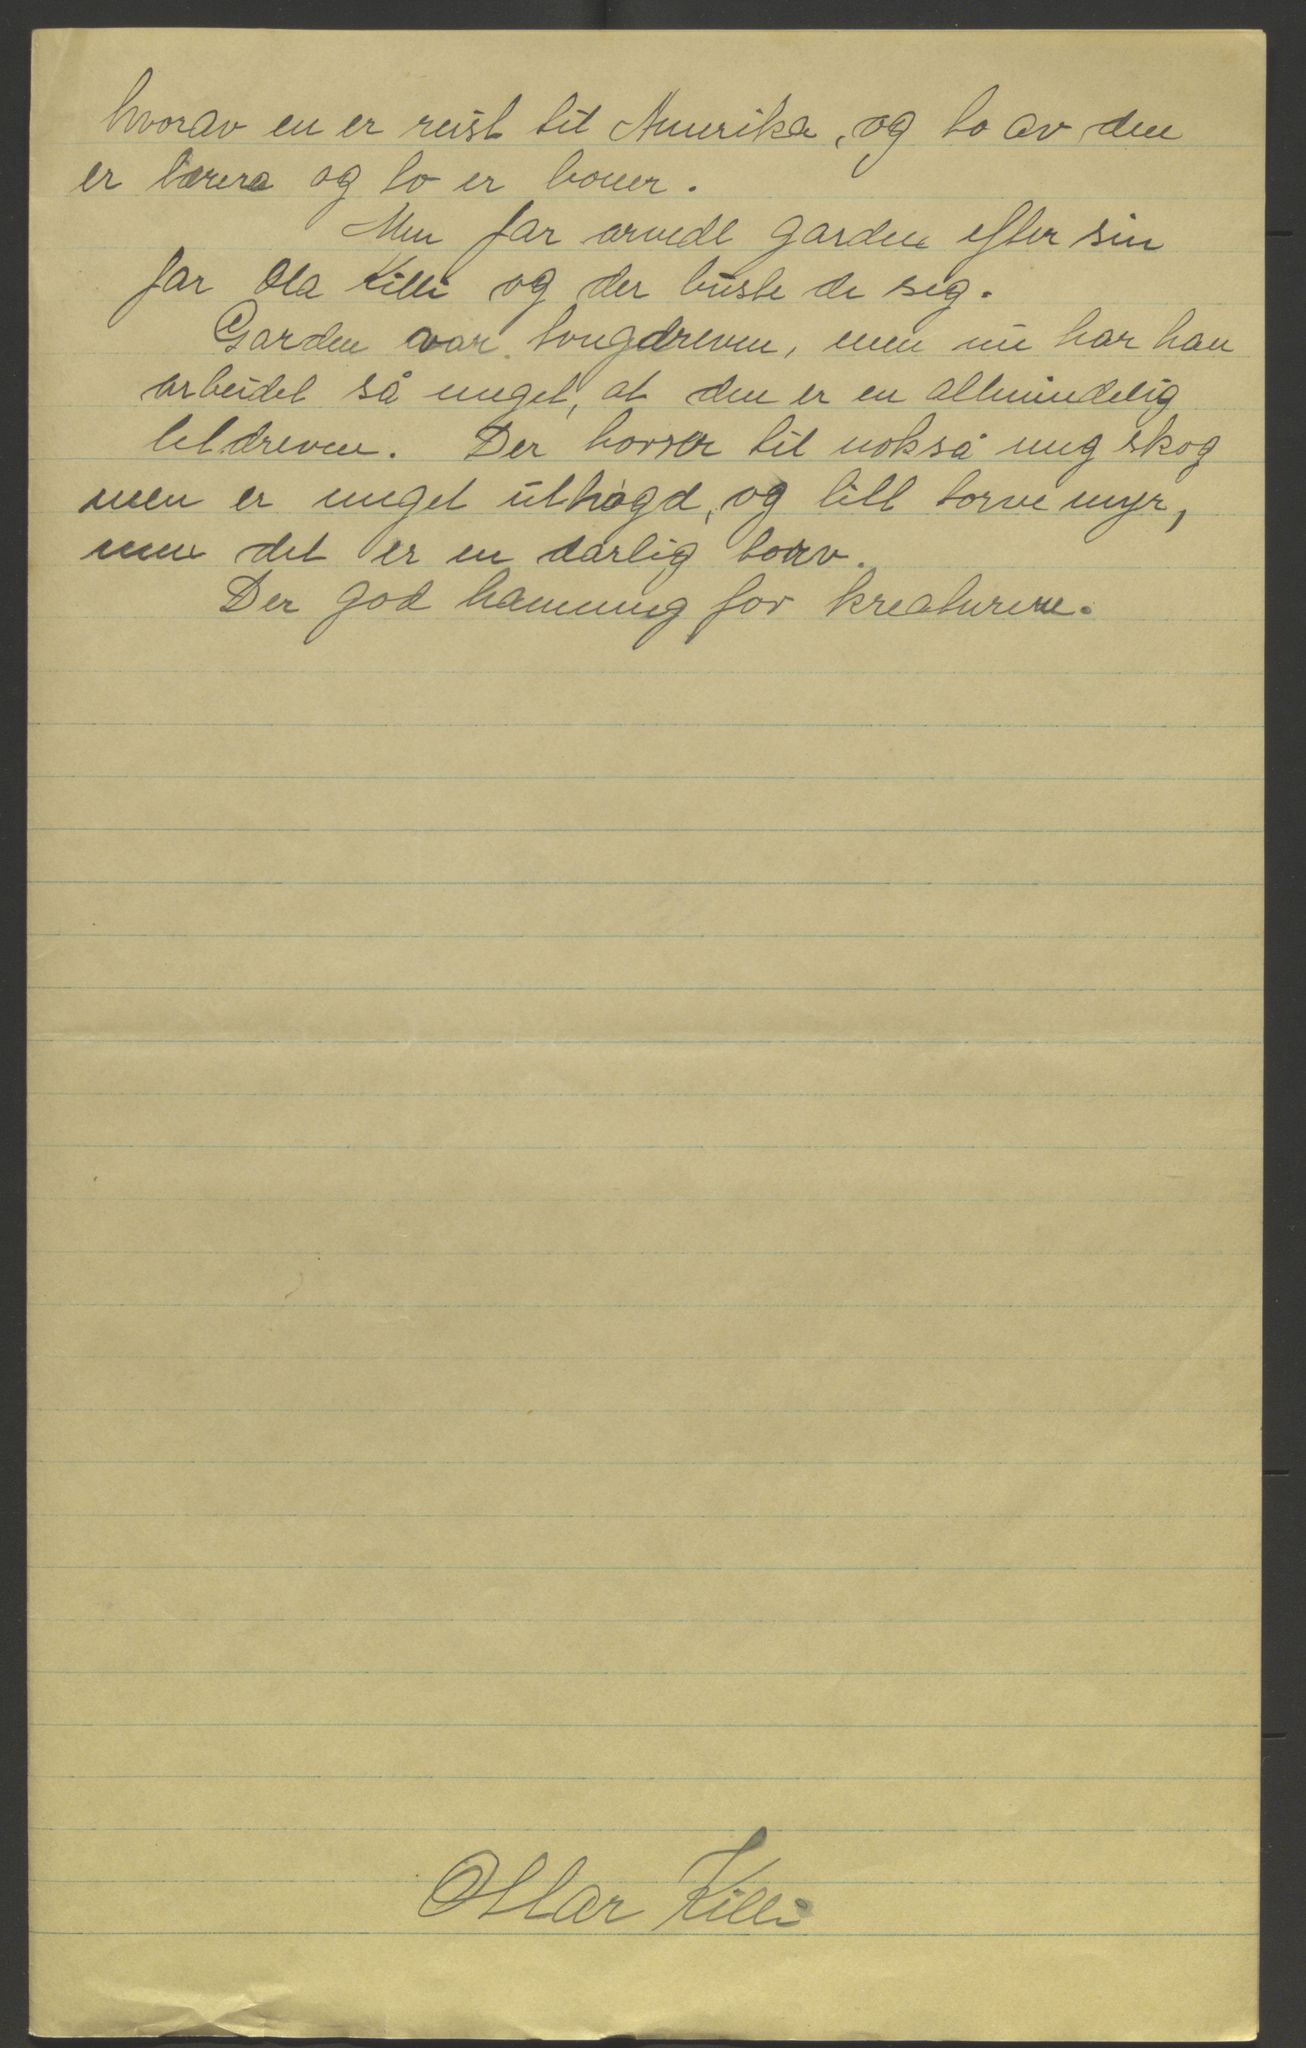 hvorav en er reist til Amerika, og to av dem
er lærera og to er boner.
Min far arvedt garden efter sin
far Ola Killi og der buste de seg.
Garden var tungdreven, men nu har han
arbeidet så meget, at den er en allmindelig
letdreven. Der hører til nokså mg skog
men er meget uthogd, og litt torvemyr,
men det er en dårlig torv.
Der god hamning for kreaturene.
Ottar Killi